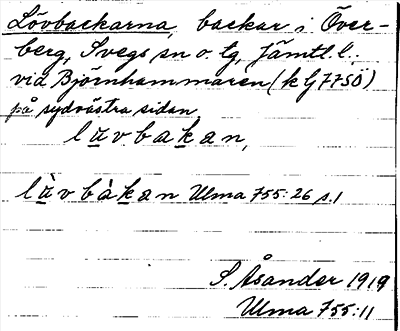 Lövbackarna, backar i Över-
berg, Svegs sn o. tg, Jämtl. l.
vid Björnhammaren (k G7750)
på sydvästra sidan
lävbakan,
lävbàkan Ulma 755:26 s.1
S. Åsander 1919
Ulma 755:11